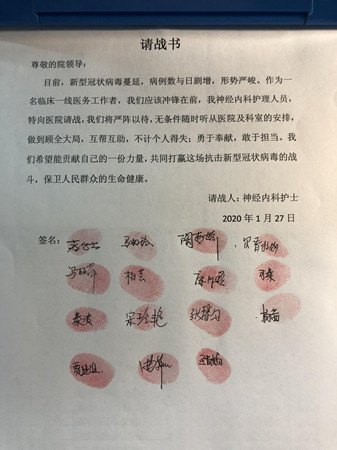 请战书
尊敬的院领导：
目前，新型冠状病毒蔓延，病例数与日剧增，形势严峻。作为一
名临床一线医务工作者，我们应该冲锋在前，我神经内科护理人员，
特向医院请战，我们将严阵以待，无条件随时听从医院及科室的安排，
做到顾全大局，互帮互助，不计个人得失；勇于奉献，敢于担当。我
们希望能贡献自己的一份力量，共同打赢这场抗击新型冠状病毒的战
斗，保卫人民群众的生命健康。
请战人：神经内科护士
2020 年 1 月 27 日
签名：